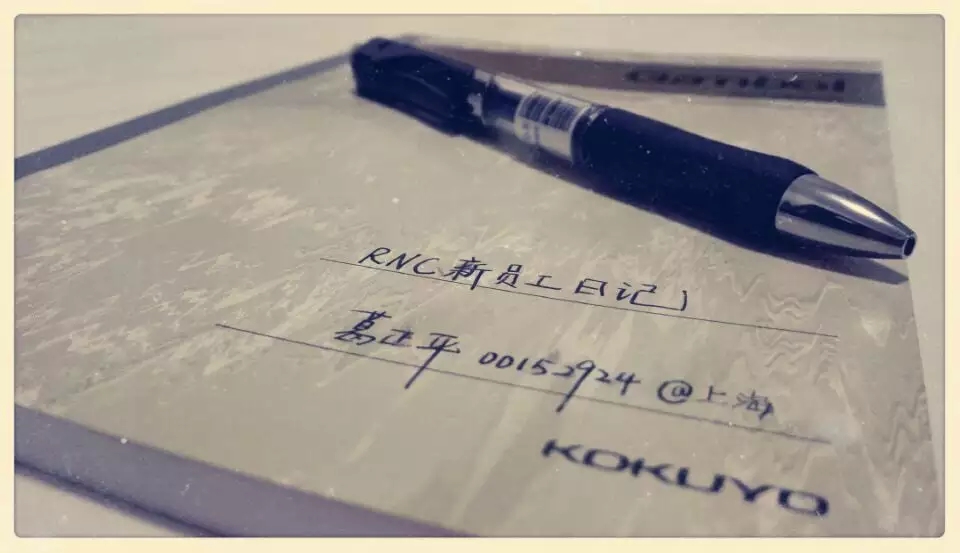 RNC新员工日记)
葛正平 00152924 @上海
KOKUYO